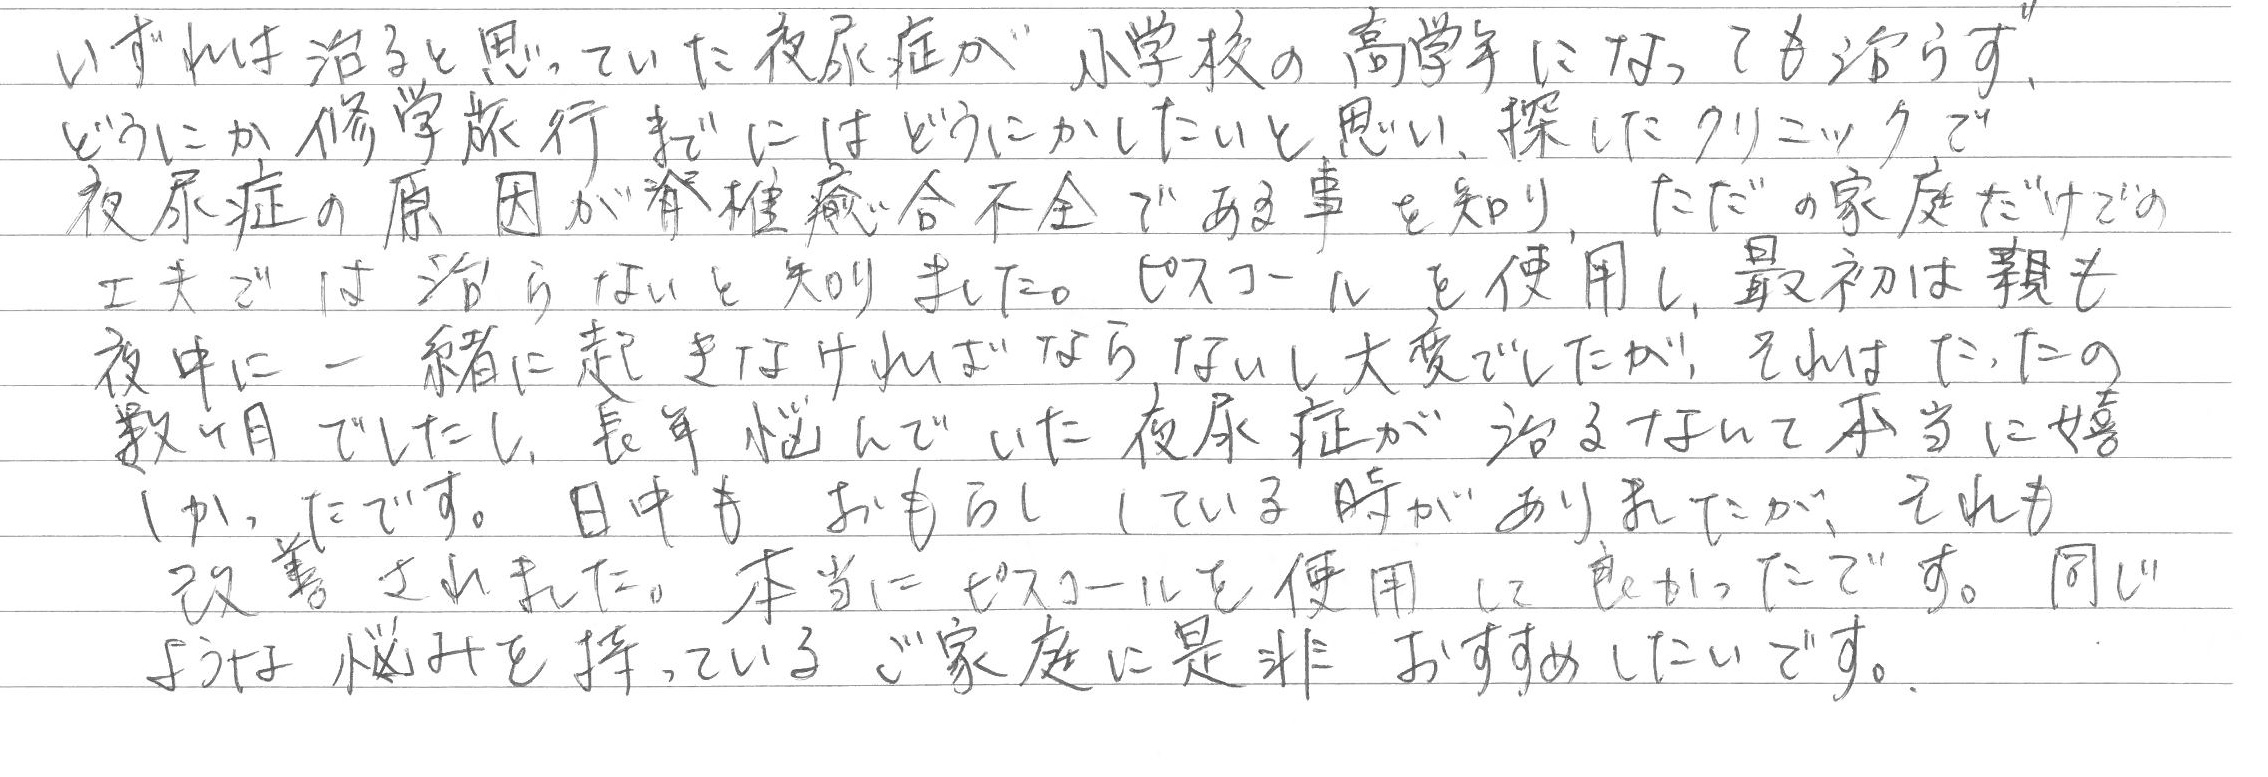 いずれは治ると思っていた夜尿症が小学校の高学年になっても治らず、
どうにか修学旅行までにはどうにかしたいと思い、探したクリニックで
夜尿症の原因が脊椎癒合不全である事を知り、ただの家庭だけでの
工夫では治らないと知りました。ピスコールを使用し、最初は親も
夜中に一緒に起きなければならないし大変でしたが、それはたったの
数ヶ月でしたし、長年悩んでいた夜尿症が治るなんて本当に嬉
しかったです。日中もおもらししている時がありましたが、それも
改善されました。本当にピスコールを使用して良かったです。同じ
ような悩みを持っているご家庭に是非おすすめしたいです。